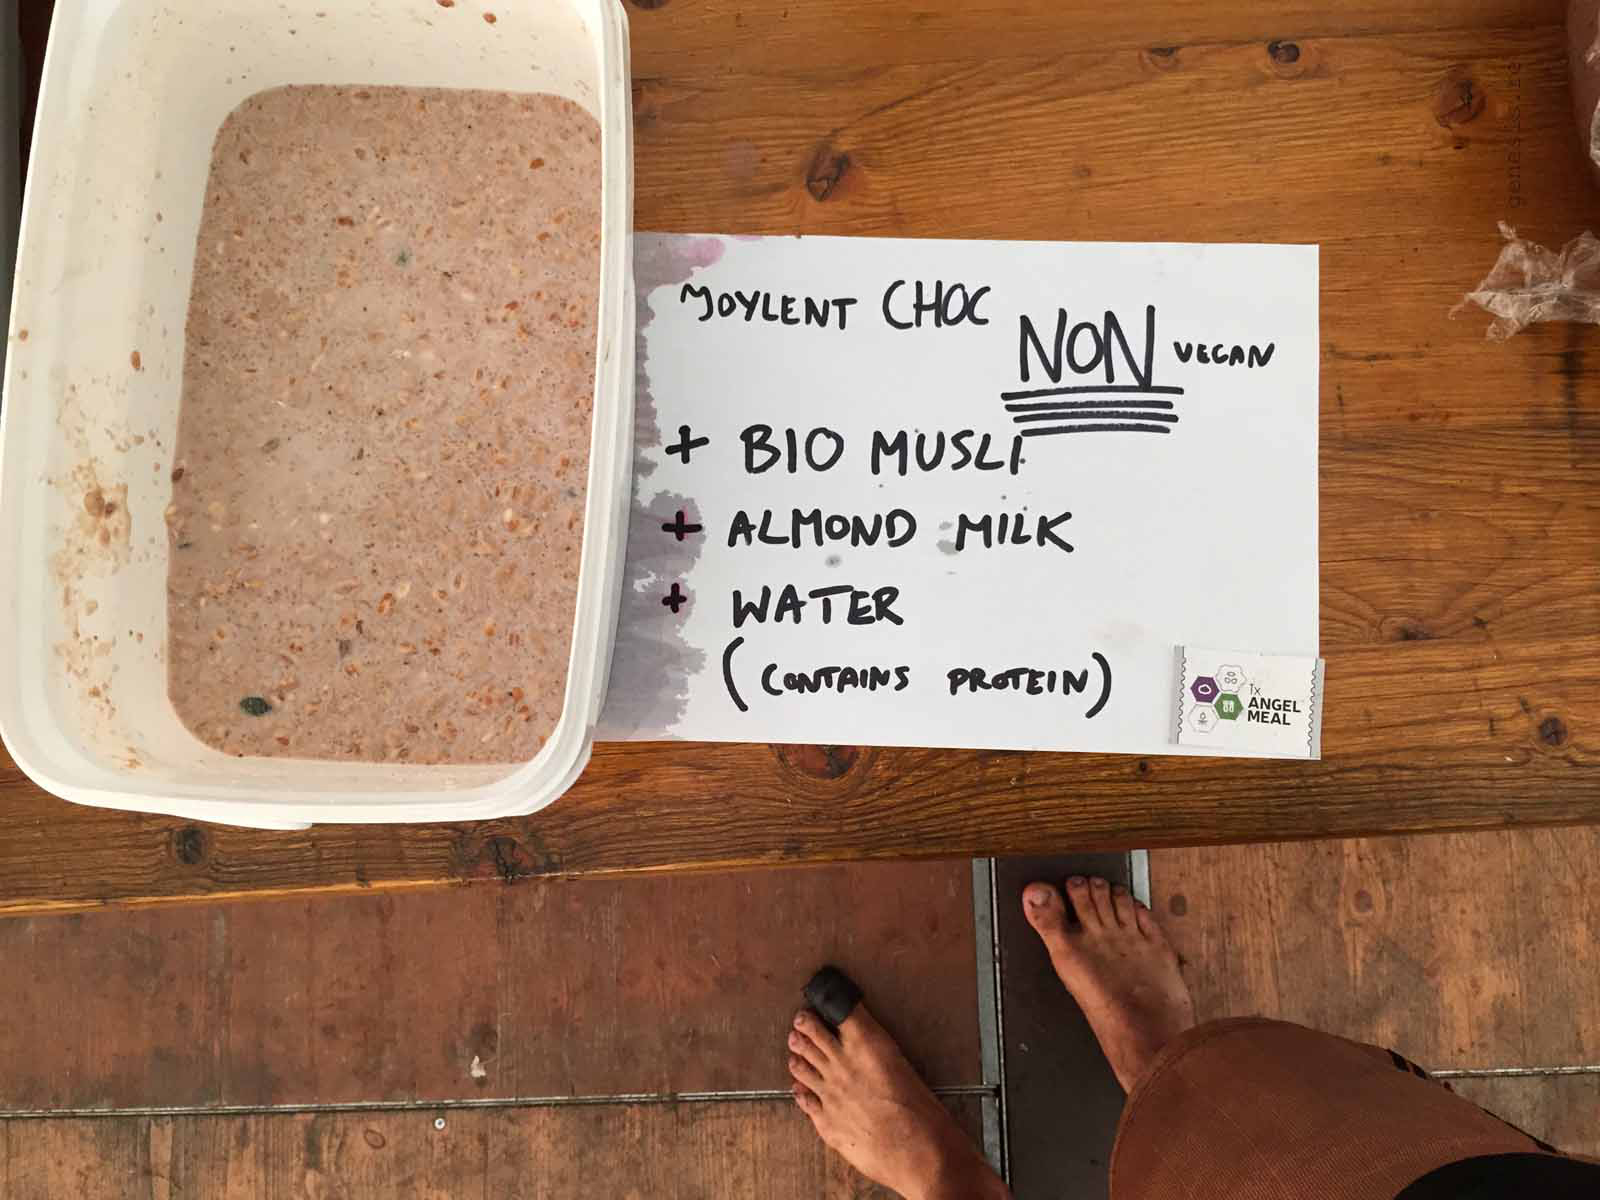 JOYLENT CHOC
NON VEGAN
+ BIO MUSLI
+ ALMOND MILK
+ WATER
(CONTAINS PROTEIN)
1x
ANGEL
MEAL
genesis.re